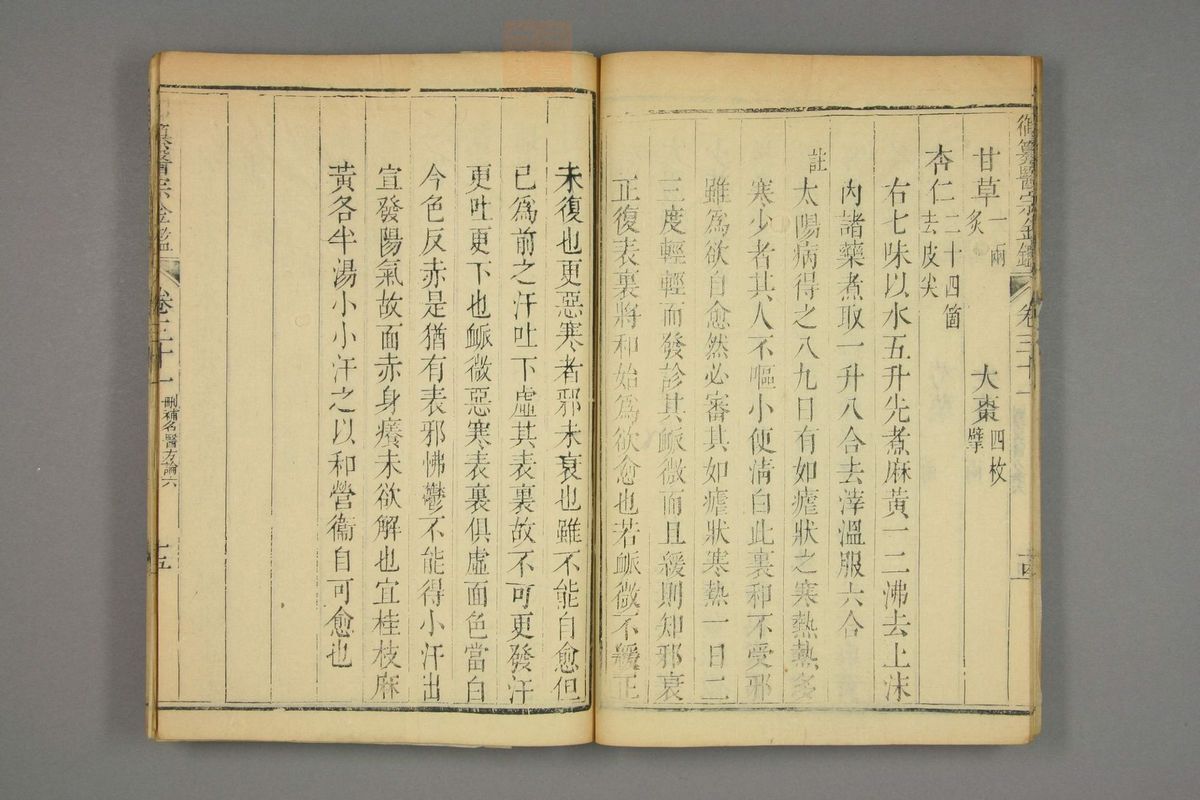 御纂醫宗金鑑 卷三十一
甘草一兩炙 大棗四枚擘
杏仁二十四箇去皮尖
右七味以水五升先煮麻黃一二沸去上沫
內諸藥煮取一升八合去滓溫服六合
註太陽病得之八九日有如瘧狀之寒熱熱多
寒少者其人不嘔小便清白此裏和不受邪
雖爲欲自愈然必審其如瘧狀寒熱一日二
三度輕輕而發診其脈微而且緩則知邪衰
正復表裏將和始爲欲愈也若脈微不緩正
未復也更惡寒者邪未衰也雖不能自愈但
已爲前之汗吐下虛其表裏故不可更發汗
更吐更下也脈微惡寒表裏俱虛面色當白
今色反赤是猶有表邪怫鬱不能得小汗出
宣發陽氣故面赤身癢未欲解也宜桂枝麻
黃各半湯小小汗之以和營衞自可愈也
纂醫宗金鑑 卷三十一 刪補名醫方論六 十五